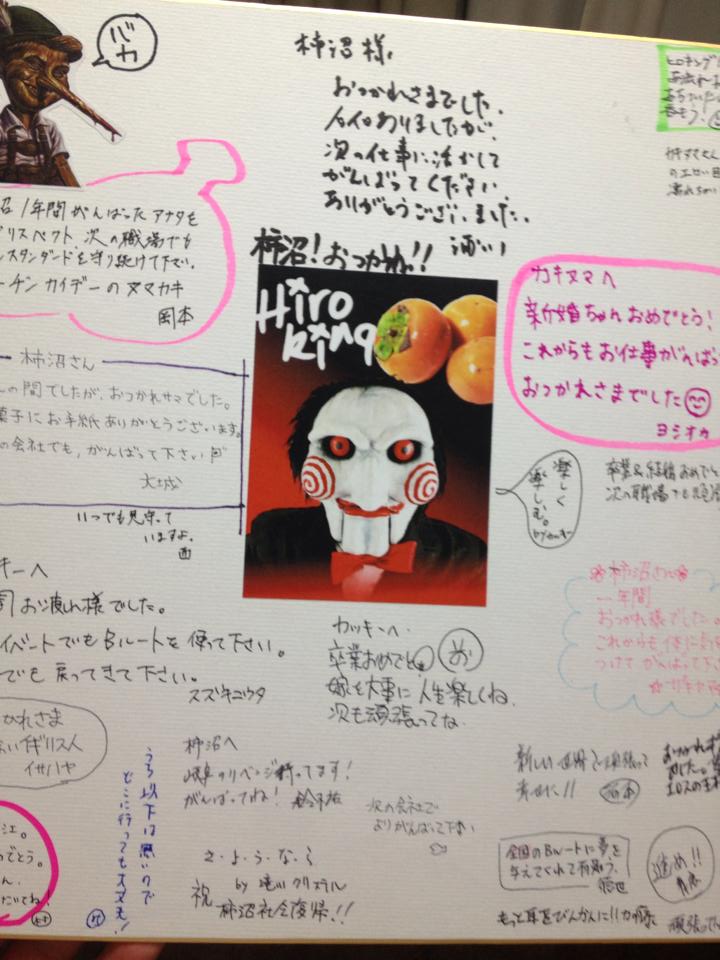 バカ
柿沼様
おつかれさまでした。
色々ありましたが、
次の仕事に活かして
がんばってください。
ありがとうございました。
柿沼!おつかれ!!
沼 1年間がんばったアナタを
リスペクト 次の職場でも
スタンダードを守り続けて下さい。
ーチン カイデーのヌマカキ
岡本
Hiro
King
カキヌマへ
新婚ちゃんおめでとう!
これからもお仕事がんばっ
おつかれさまでした
ヨシオカ
柿沼さん
の間でしたが、おつかれサマでした。
菓子にお手紙ありがとうございます。
の会社でも、がんばって下さい
大城
いつでも見守って
いますよ。
西
楽しく
楽しむ。
byカッキー
次の職場でも
柿沼さん
一年間
おつかれ様でした
これからも体に気を
つけてがんばって下
キーへ
お疲れ様でした。
イベントでもBルートを使って下さい。
でも戻ってきて下さい。
スズキニウタ
カッキーへ
卒業おめでとう
嫁を大事に人生楽しくね。
次も頑張ってな
かれさま
イギリス人
イサハヤ
うち以下は悪いので
どこに行っても大丈夫!
柿沼へ
岐阜のリベンジ待ってます!
がんばってね!
次の会社で
よりがんばって下さい
新しい世界で頑張って
幸せに!!
さ・よ・う・な・ら
by 滝川クリステル
祝 柿沼社会復帰!!
全国のBルートに夢を
与えてくれて有難う。
進め!!
もっと耳をびんかんに!!
頑張って